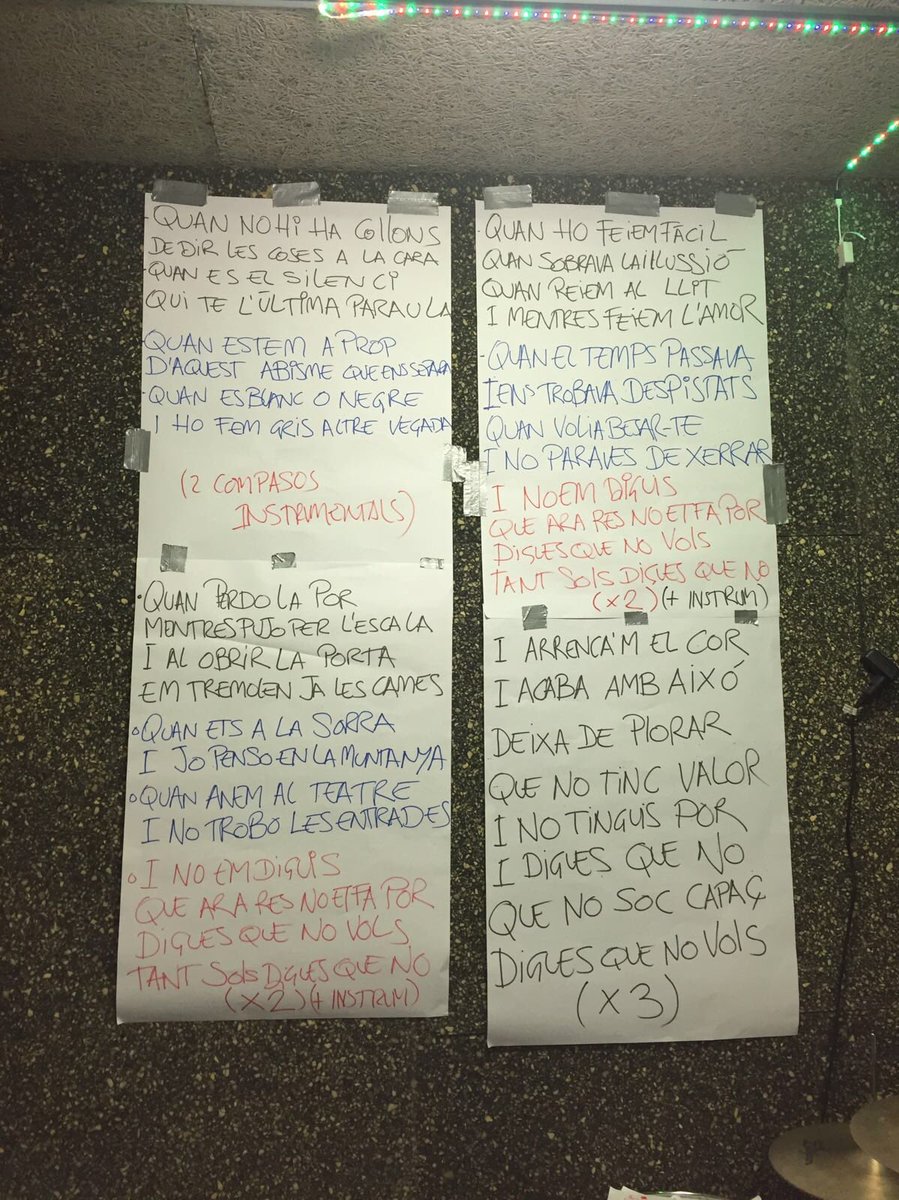 - QUAN NO HI HA COLLONS
DE DIR LES COSES A LA CARA
- QUAN ES EL SILENCI
QUI TE L'ÚLTIMA PARAULA
QUAN ESTEM A PROP
D'AQUEST ABISME QUE ENS SEPARA
- QUAN ES BLANC O NEGRE
I HO FEM GRIS ALTRE VEGADA
(2 COMPASOS
INSTRUMENTALS)
• QUAN PERDO LA POR
MENTRES PUJO PER L'ESCALA
I AL OBRIR LA PORTA
EM TREMOLEN JA LES CAMES
• QUAN ETS A LA SORRA
I JO PENSO EN LA MUNTANYA
• QUAN ANEM AL TEATRE
I NO TROBO LES ENTRADES
• I NO EM DIGUIS
QUE ARA RES NO ET FA POR
DIGUES QUE NO VOLS
TANT SOLS DIGUES QUE NO
(X2) (+ INSTRUM)
- QUAN HO FEIEM FÀCIL
QUAN SOBRAVA LA IL·LUSSIÓ
QUAN REIEM AL LLIT
I MENTRES FEIEM L'AMOR
- QUAN EL TEMPS PASSAVA
I ENS TROBAVA DESPISTATS
QUAN VOLIA BESAR-TE
I NO PARAVES DE XERRAR
I NO EM DIGUS
QUE ARA RES NO ET FA POR
DIGUES QUE NO VOLS
TANT SOLS DIGUES QUE NO
(X2) (+ INSTRUM)
I ARRENCA'M EL COR
I ACABA AMB AIXÓ
DEIXA DE PLORAR
QUE NO TINC VALOR
I NO TINGUIS POR
I DIGUES QUE NO
QUE NO SOC CAPAÇ
DIGUES QUE NO VOLS
(X3)